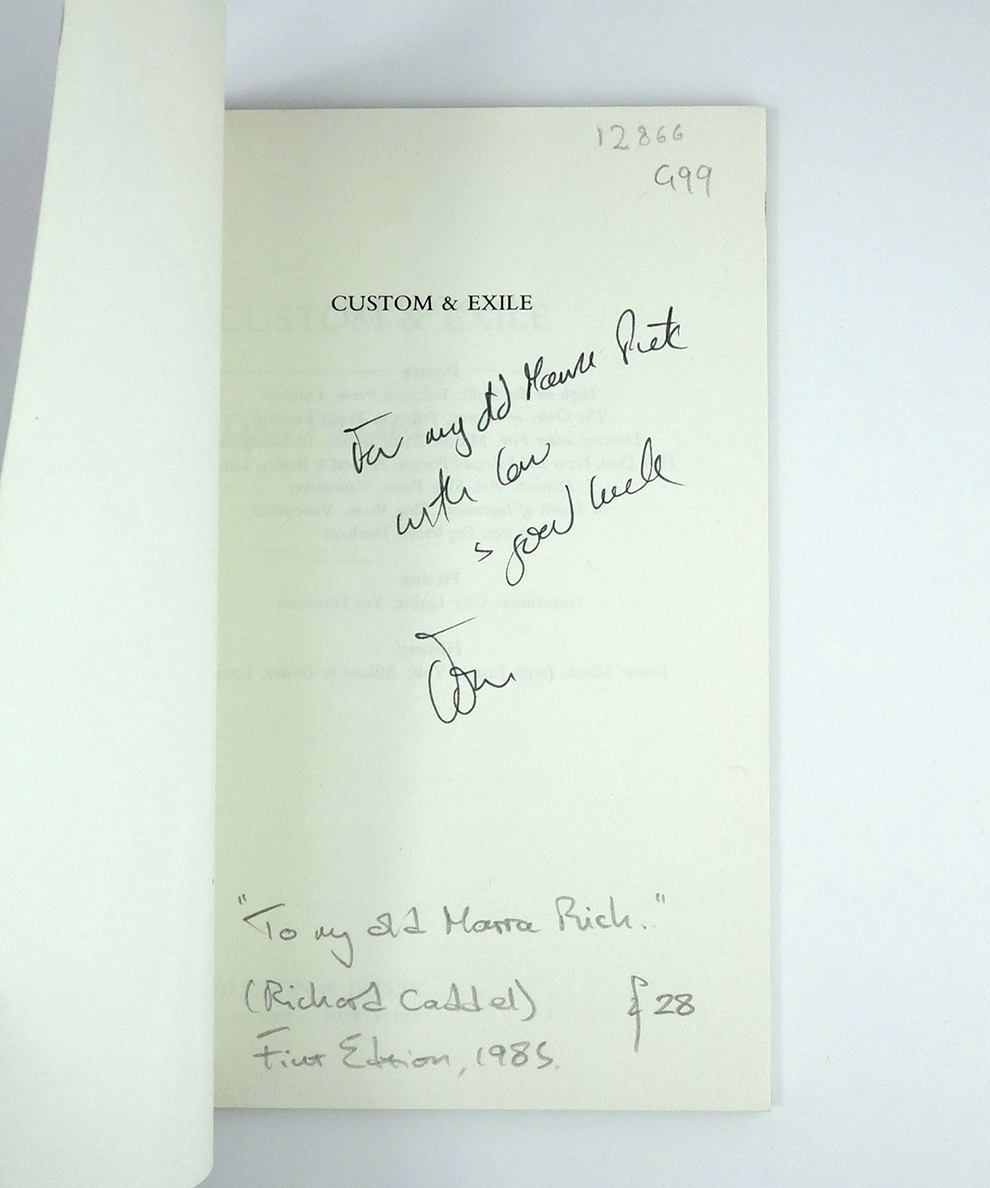 12866
G99
CUSTOM & EXILE
For my old Marra Rick
with love
& good luck
Tom
"To my old Marra Rich."
(Richard Caddel) £28
First Edition, 1985.